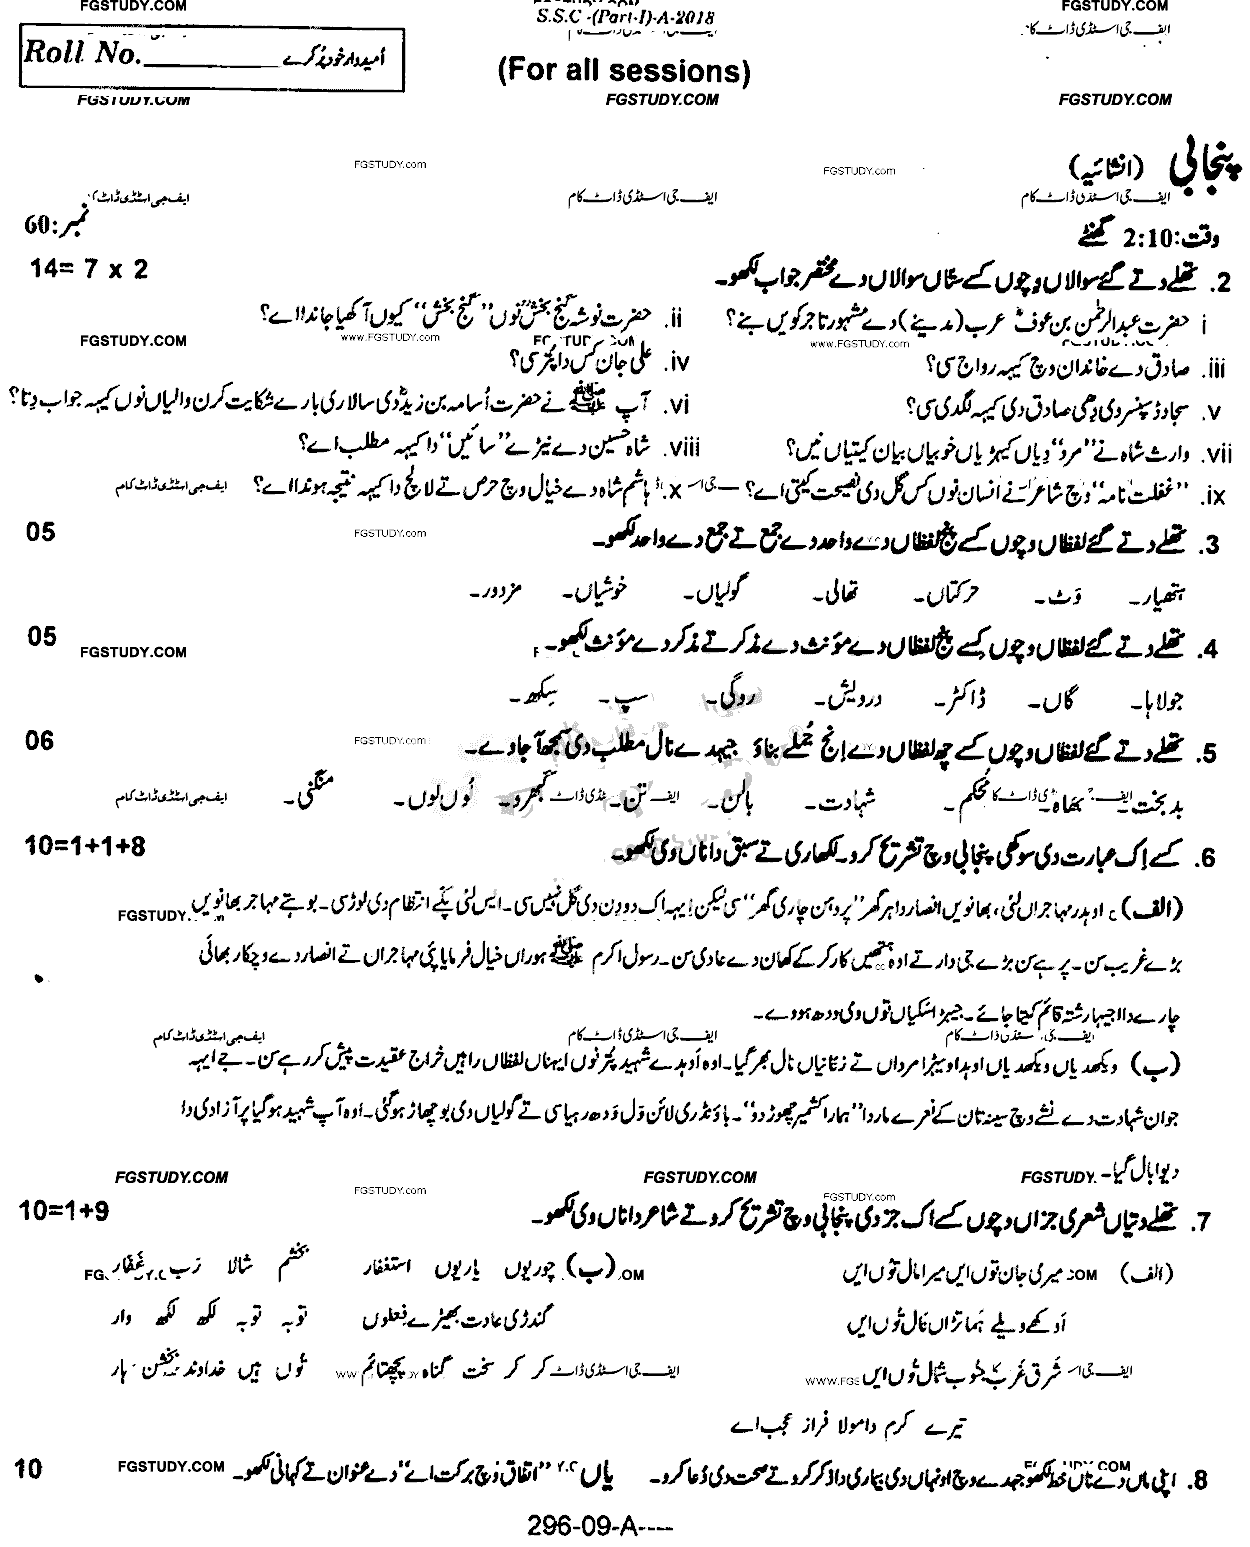 FGSTUDY.COM
S.S.C -(Part-I)-A-2018
FGSTUDY.COM
ایف جی اسٹڈی ڈاٹ کام
Roll No.__________ امیدوار خود پُر کرے
(For all sessions)
FGSTUDY.COM FGSTUDY.COM FGSTUDY.COM
پنجابی (انشائیہ)
FGSTUDY.com FGSTUDY.com
ایف جی اسٹڈی ڈاٹ کام ایف جی اسٹڈی ڈاٹ کام ایف جی اسٹڈی ڈاٹ کام
وقت:2:10 گھنٹے نمبر:60
2. تھلے دتے گئے سوالاں وچوں کسے ستاں سوالاں دے مختصر جواب لکھو۔ 14= 7 x 2
i حضرت عبدالرحمٰن بن عوفؓ عرب (مدینے) دے مشہور تاجر کویں بنے؟ ii. حضرت نوشہ گنج بخشؒ نوں "گنج بخش" کیوں آکھیا جاندا اے؟
FGSTUDY.COM www.FGSTUDY.com www.FGSTUDY.com
iii. صادق دے خاندان وچ کیہہ رواج سی؟ iv. علی جان کس دا پتر سی؟
v. سجاد ڈسپنسر دی دھی صادق دی کیہہ لگدی سی؟ vi. آپ ﷺ نے حضرت اُسامہ بن زیدؓ دی سالاری بارے شکایت کرن والیاں نوں کیہہ جواب دِتا؟
vii. وارث شاہ نے "مرد" دِیاں کیہڑیاں خوبیاں بیان کیتیاں نیں؟ viii. شاہ حسین دے نیڑے "سائیں" دا کیہہ مطلب اے؟
ix. "غفلت نامہ" وچ شاعر نے انسان نوں کس گل دی نصیحت کیتی اے؟ x. ہاشم شاہ دے خیال وچ حرص تے لالچ دا کیہہ نتیجہ ہوندا اے؟ ایف جی اسٹڈی ڈاٹ کام
3. تھلے دتے گئے لفظاں وچوں کسے پنج لفظاں دے واحد دے جمع تے جمع دے واحد لکھو۔ FGSTUDY.com 05
ہتھیار۔ وَٹ۔ حرکتاں۔ تھالی۔ گولیاں۔ خوشیاں۔ مزدور۔
4. تھلے دتے گئے لفظاں وچوں کسے پنج لفظاں دے مؤنث دے مذکر تے مذکر دے مؤنث لکھو۔ 05
FGSTUDY.COM
جولاہا۔ گاں۔ ڈاکٹر۔ درویش۔ روگی۔ سپ۔ سِکھ۔
5. تھلے دتے گئے لفظاں وچوں کسے چھ لفظاں دے اِنج جُملے بناؤ جیہدے نال مطلب دی سمجھ آ جاوے۔ FGSTUDY.com 06
بدبخت۔ بھاہ۔ مُحکم۔ شہادت۔ بالن۔ تن۔ گبھرو۔ لُوں لُوں۔ منگنی۔ ایف جی اسٹڈی ڈاٹ کام
6. کسے اِک عبارت دی سوکھی پنجابی وچ تشریح کرو۔ لکھاری تے سبق دا ناں وی لکھو۔ 10=1+1+8
(الف) اودر مہاجراں لئی، بھانویں انصار دا ہر گھر "پردھن چاری گھر" سی لیکن ایہہ اک دو دن دی گل نہیں سی۔ ایس لئی پکے انتظام دی لوڑ سی۔ بوہتے مہاجر بھانویں FGSTUDY.
بڑے غریب سن۔ پر ہے سن بڑے جی دار تے اوہ ہتھیں کار کر کے کھان دے عادی سن۔ رسول اکرم ﷺ ہوراں خیال فرمایا پئی مہاجراں تے انصار دے وچکار بھائی
چارے دا اجیہا رشتہ قائم کیتا جائے۔ جیہڑا سکیاں توں وی ودھ ہووے۔
ایف جی اسٹڈی ڈاٹ کام ایف جی اسٹڈی ڈاٹ کام ایف جی اسٹڈی ڈاٹ کام
(ب) ویکھدیاں ویکھدیاں اوہدا ویہڑا مرداں تے زنانیاں نال بھر گیا۔ اوہ اوہدے شہید پتر نوں ایہناں لفظاں راہیں خراج عقیدت پیش کر رہے سن۔ جے ایہہ
جوان شہادت دے نشے وچ سینہ تان کے نعرے ماردا "ہمارا کشمیر چھوڑ دو"۔ باؤنڈری لائن وَل ودھ رہیا سی تے گولیاں دی بوچھاڑ ہوگئی۔ اوہ آپ شہید ہوگیا پر آزادی دا
دیوا بال گیا۔
FGSTUDY.COM FGSTUDY.COM FGSTUDY.
FGSTUDY.com FGSTUDY.com
7. تھلے دتیاں شعری جزاں وچوں کسے اک جز دی پنجابی وچ تشریح کرو تے شاعر دا ناں وی لکھو۔ 10=1+9
(الف) میری جان توں ایں میرا مال توں ایں (ب) چوریوں یاریوں استغفار بخشم شالا رَب غَفّار
اَوکھے ویلے ہَمانڑاں نال توں ایں گندڑی عادت بھیڑے فعلوں توبہ توبہ لکھ لکھ وار
شَرق غَرب جنوب شمال تُوں ایں کر کر سخت گناہ پچھتائم تُوں ہیں خداوند بخشن ہار
تیرے کرم دا مولا فراز عجب اے
8. اپنی ماں دے ناں خط لکھو جیہدے وچ اونہاں دی بیماری دا ذکر کرو تے صحت دی دُعا کرو۔ یاں "اتفاق وچ برکت اے" دے عنوان تے کہانی لکھو۔ FGSTUDY.COM 10
296-09-A----